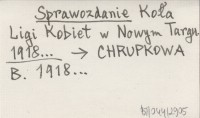 Sprawozdanie Koła
Ligi Kobiet w Nowym Targu
1918... → CHRUPKOWA
B. 1918...